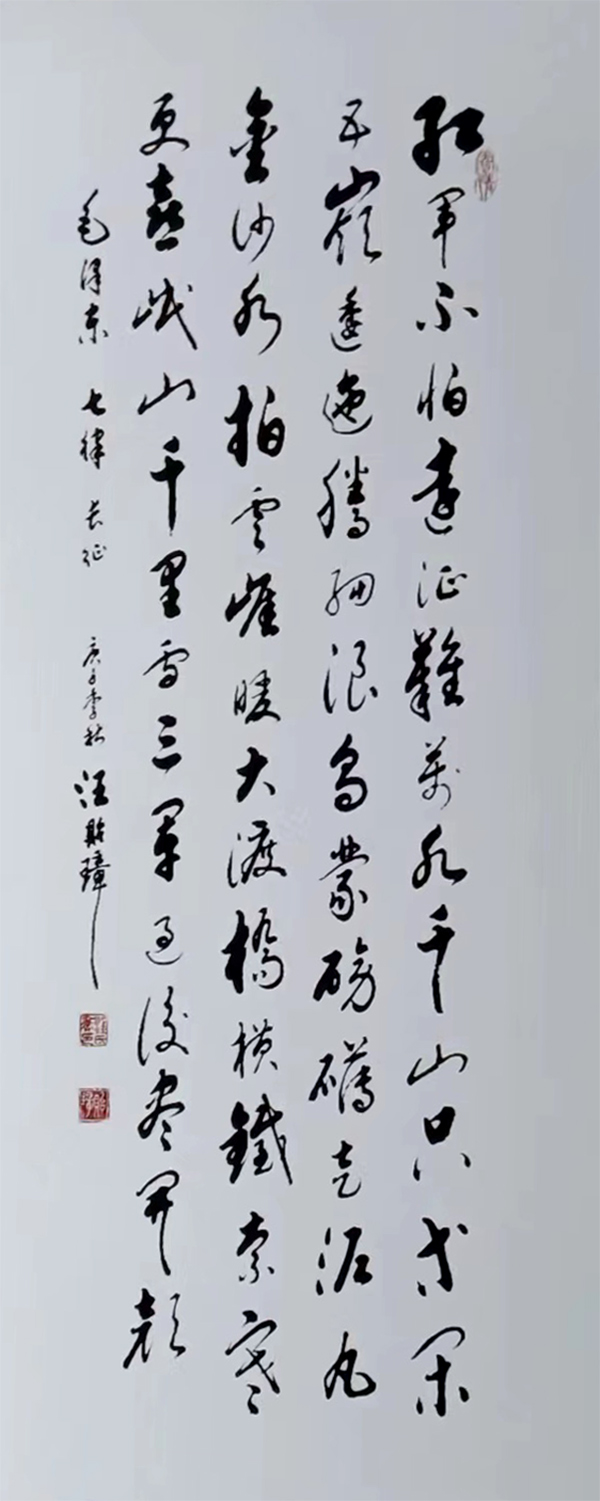 红军不怕远征难万水千山只等闲
五嶺逶迤腾细浪乌蒙磅礴走泥丸
金沙水拍雲崖暖大渡橋横鐵索寒
更喜岷山千里雪三军过後尽开颜
毛泽东 七律 长征 庚子季秋 汪